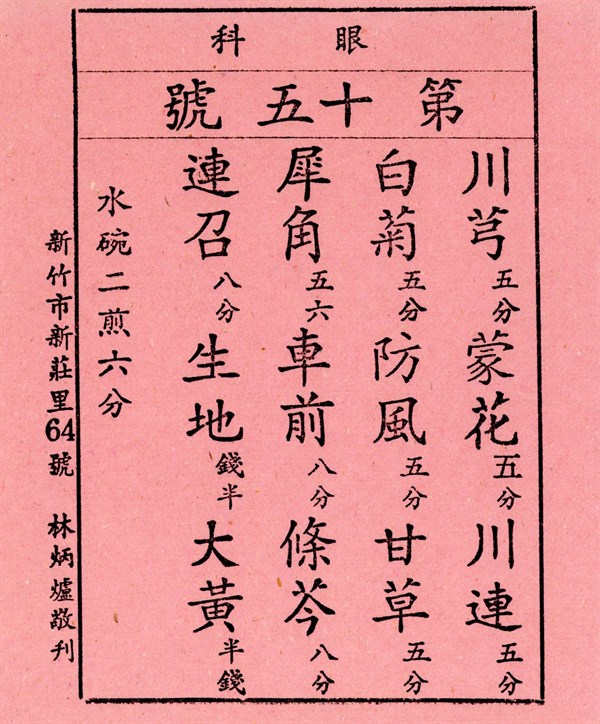 眼科
第十五號
川芎五分 蒙花五分 川連五分
白菊五分 防風五分 甘草五分
犀角五六 車前八分 條芩八分
連召八分 生地錢半 大黃半錢
水碗二煎六分
新竹市新莊里64號 林炳爐敬刊